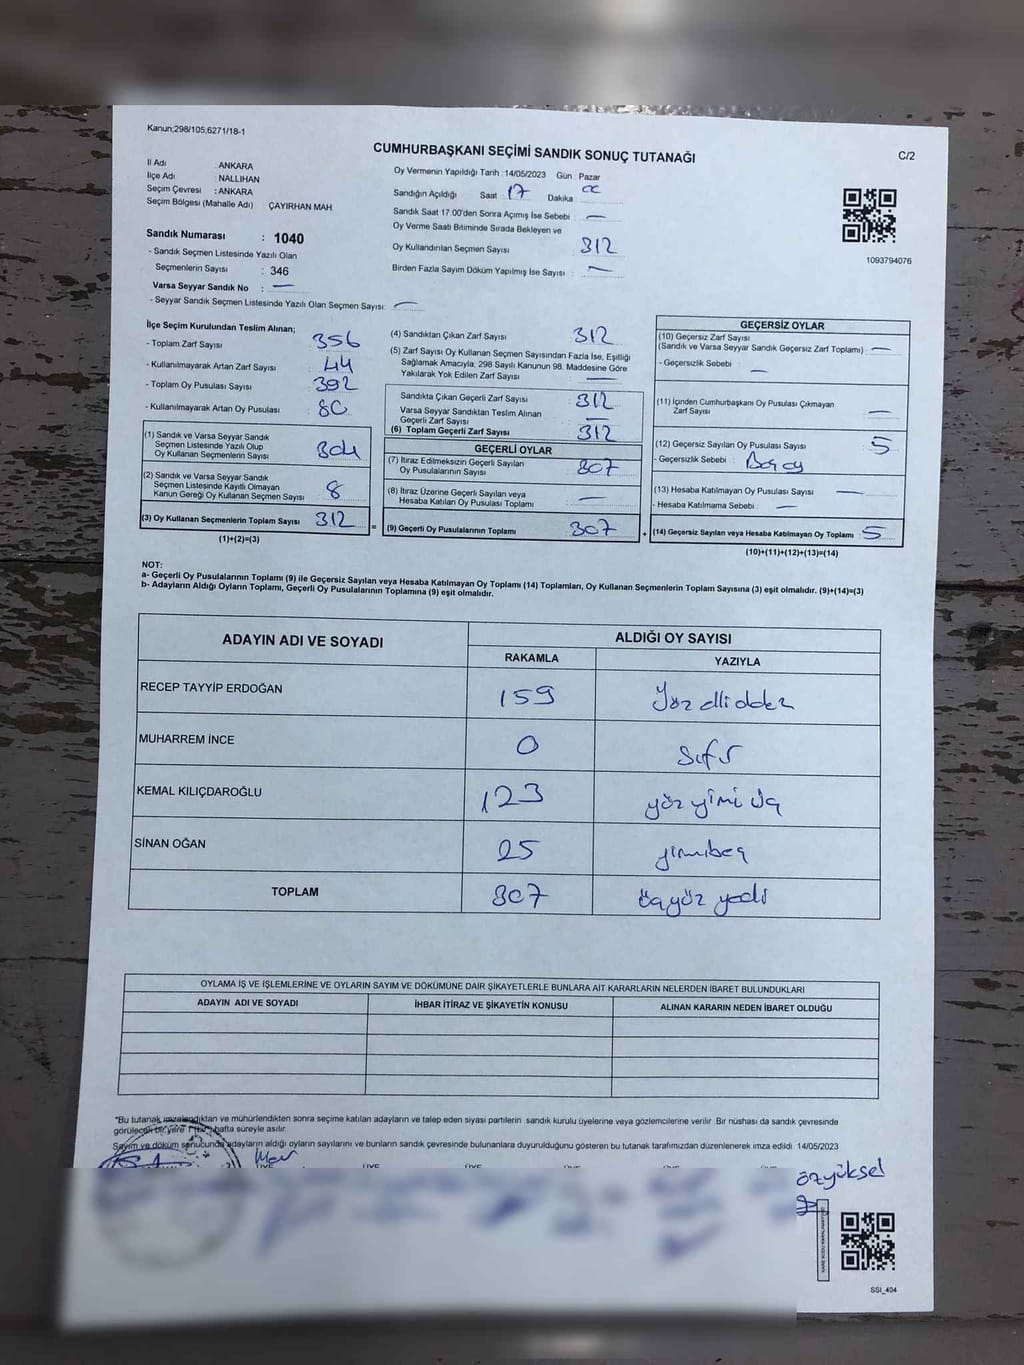 Kanun;298/105;6271/18-1
CUMHURBAŞKANI SEÇİMİ SANDIK SONUÇ TUTANAĞI
C/2
İl Adı : ANKARA
İlçe Adı : NALLIHAN
Seçim Çevresi : ANKARA
Seçim Bölgesi (Mahalle Adı) : ÇAYIRHAN MAH.
Sandık Numarası : 1040
- Sandık Seçmen Listesinde Yazılı Olan
Seçmenlerin Sayısı : 346
Varsa Seyyar Sandık No : —
- Seyyar Sandık Seçmen Listesinde Yazılı Olan Seçmen Sayısı: —
Oy Vermenin Yapıldığı Tarih :14/05/2023 Gün : Pazar
Sandığın Açıldığı Saat : 17 Dakika : 00
Sandık Saat 17.00'den Sonra Açımış İse Sebebi : —
Oy Verme Saati Bitiminde Sırada Bekleyen ve
Oy Kullandırılan Seçmen Sayısı 312
Birden Fazla Sayım Döküm Yapılmış İse Sayısı : —
1093794076
İlçe Seçim Kurulundan Teslim Alınan;
- Toplam Zarf Sayısı : 356
- Kullanılmayarak Artan Zarf Sayısı : 44
- Toplam Oy Pusulası Sayısı : 392
- Kullanılmayarak Artan Oy Pusulası : 80
(1) Sandık ve Varsa Seyyar Sandık
Seçmen Listesinde Yazılı Olup
Oy Kullanan Seçmenlerin Sayısı 304
(2) Sandık ve Varsa Seyyar Sandık
Seçmen Listesinde Kayıtlı Olmayan
Kanun Gereği Oy Kullanan Seçmen Sayısı 8
(3) Oy Kullanan Seçmenlerin Toplam Sayısı 312
(1)+(2)=(3)
(4) Sandıktan Çıkan Zarf Sayısı 312
(5) Zarf Sayısı Oy Kullanan Seçmen Sayısından Fazla İse, Eşitliği
Sağlamak Amacıyla, 298 Sayılı Kanunun 98. Maddesine Göre
Yakılarak Yok Edilen Zarf Sayısı : —
Sandıkta Çıkan Geçerli Zarf Sayısı 312
Varsa Seyyar Sandıktan Teslim Alınan
Geçerli Zarf Sayısı —
(6) Toplam Geçerli Zarf Sayısı 312
GEÇERLİ OYLAR
(7) İtiraz Edilmeksizin Geçerli Sayılan
Oy Pusulalarının Sayısı 307
(8) İtiraz Üzerine Geçerli Sayılan veya
Hesaba Katılan Oy Pusulası Toplamı —
= (9) Geçerli Oy Pusulalarının Toplamı 307
GEÇERSİZ OYLAR
(10) Geçersiz Zarf Sayısı
(Sandık ve Varsa Seyyar Sandık Geçersiz Zarf Toplamı) —
- Geçersizlik Sebebi : —
(11) İçinden Cumhurbaşkanı Oy Pusulası Çıkmayan
Zarf Sayısı —
(12) Geçersiz Sayılan Oy Pusulası Sayısı : 5
- Geçersizlik Sebebi :
(13) Hesaba Katılmayan Oy Pusulası Sayısı : —
- Hesaba Katılmama Sebebi : —
+ (14) Geçersiz Sayılan veya Hesaba Katılmayan Oy Toplamı : 5
(10)+(11)+(12)+(13)=(14)
NOT:
a- Geçerli Oy Pusulalarının Toplamı (9) ile Geçersiz Sayılan veya Hesaba Katılmayan Oy Toplamı (14) Toplamları, Oy Kullanan Seçmenlerin Toplam Sayısına (3) eşit olmalıdır. (9)+(14)=(3)
b- Adayların Aldığı Oyların Toplamı, Geçerli Oy Pusulalarının Toplamına (9) eşit olmalıdır.
ADAYIN ADI VE SOYADI ALDIĞI OY SAYISI
RAKAMLA YAZIYLA
RECEP TAYYİP ERDOĞAN 159 Yüz elli dokuz
MUHARREM İNCE 0 sıfır
KEMAL KILIÇDAROĞLU 123 yüz yirmi üç
SİNAN OĞAN 25 yirmibeş
TOPLAM 307 üçyüz yedi
OYLAMA İŞ VE İŞLEMLERİNE VE OYLARIN SAYIM VE DÖKÜMÜNE DAİR ŞİKAYETLERLE BUNLARA AİT KARARLARIN NELERDEN İBARET BULUNDUKLARI
ADAYIN ADI VE SOYADI İHBAR İTİRAZ VE ŞİKAYETİN KONUSU ALINAN KARARIN NEDEN İBARET OLDUĞU
*Bu tutanak imzalandıktan ve mühürlendikten sonra seçime katılan adayların ve talep eden siyasi partilerin sandık kurulu üyelerine veya gözlemcilerine verilir. Bir nüshası da sandık çevresinde
görülecek bir yere 1 (bir) hafta süreyle asılır.
Sayım ve döküm sonucunda adayların aldığı oyların sayılarını ve bunların sandık çevresinde bulunanlara duyurulduğunu gösteren bu tutanak tarafımızdan düzenlenerek imza edildi. 14/05/2023
özyüksel
SSI_404